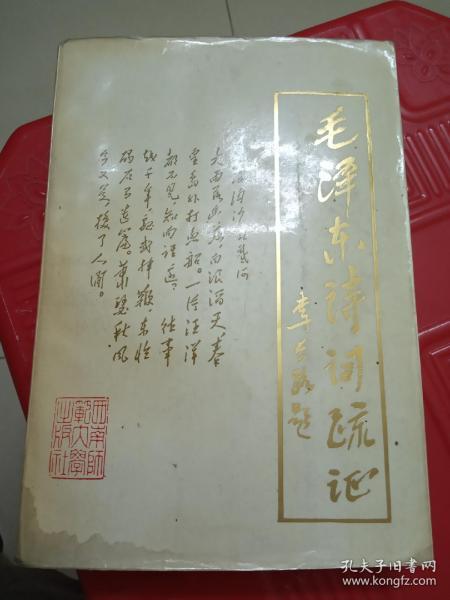 毛泽东诗词疏证
李长路题
浪淘沙 北戴河
大雨落幽燕,白浪滔天,秦
皇岛外打鱼船。一片汪洋
都不见,知向谁边。往事
越千年,魏武挥鞭,东临
碣石有遗篇。萧瑟秋风
今又是,换了人间。
西南師
範大學
出版社
孔夫子旧书网
www.kongfz.com